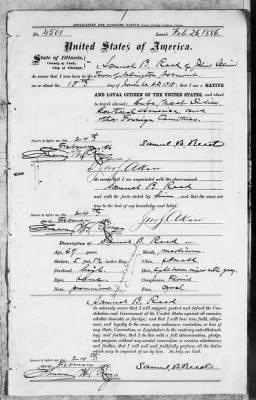 APPLICATION FOR PASSPORT, NATIVE
No. 4501 Issued Feb. 26, 1886.
United States of America.
State of Illinois,
County of Cook,
City of Chicago.
I, Samuel B. Reed of
do swear that I was born in the Town of Arlington Vermont
on or about the day of November AD 1818, that I am a NATIVE
AND LOYAL CITIZEN OF THE UNITED STATES, and about
to travel abroad; Cuba, West Indies
Central America and
other Foreign Countries.
Sworn to before me, this 24th
day of February, 1886
Samuel B. Reed
do swear that I am acquainted with the above named
Samuel B. Reed
and with the facts stated by him, and that the same are true to the
best of my knowledge and belief.
Sworn to before me, this 24th
day of February
Description of Samuel B. Reed
Age, 67 years Mouth, medium
Stature, 5 feet inches Eng. Chin, small
Forehead, high Hair, light brown mixed with gray,
Eyes, blue Complexion, florid
Nose, prominent Face, oval
I, Samuel B. Reed
do solemnly swear that I will support, protect and defend the
Constitution and Government of the United States against all enemies,
whether domestic or foreign; and that I will bear true faith, allegi-
ance, and loyalty to the same, any ordinance, resolution, or law of
any State, Convention or Legislature to the contrary notwith-
standing; and further, that I do this with a full determination, pledge,
and purpose, without any mental reservation or evasion whatsoever;
and further, that I will well and faithfully perform all the duties
which may be required of me by law. So help me God.
Sworn to before me, this 24th
day of February
Samuel B. Reed